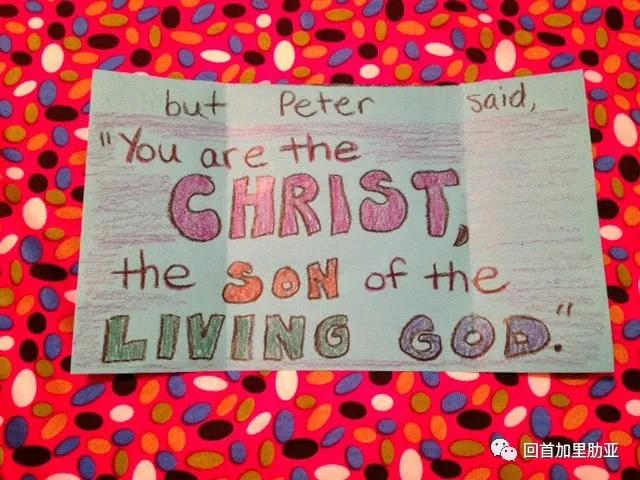 but Peter said,
"You are the
CHRIST,
the SON of the
LIVING GOD."
回首加里肋亚